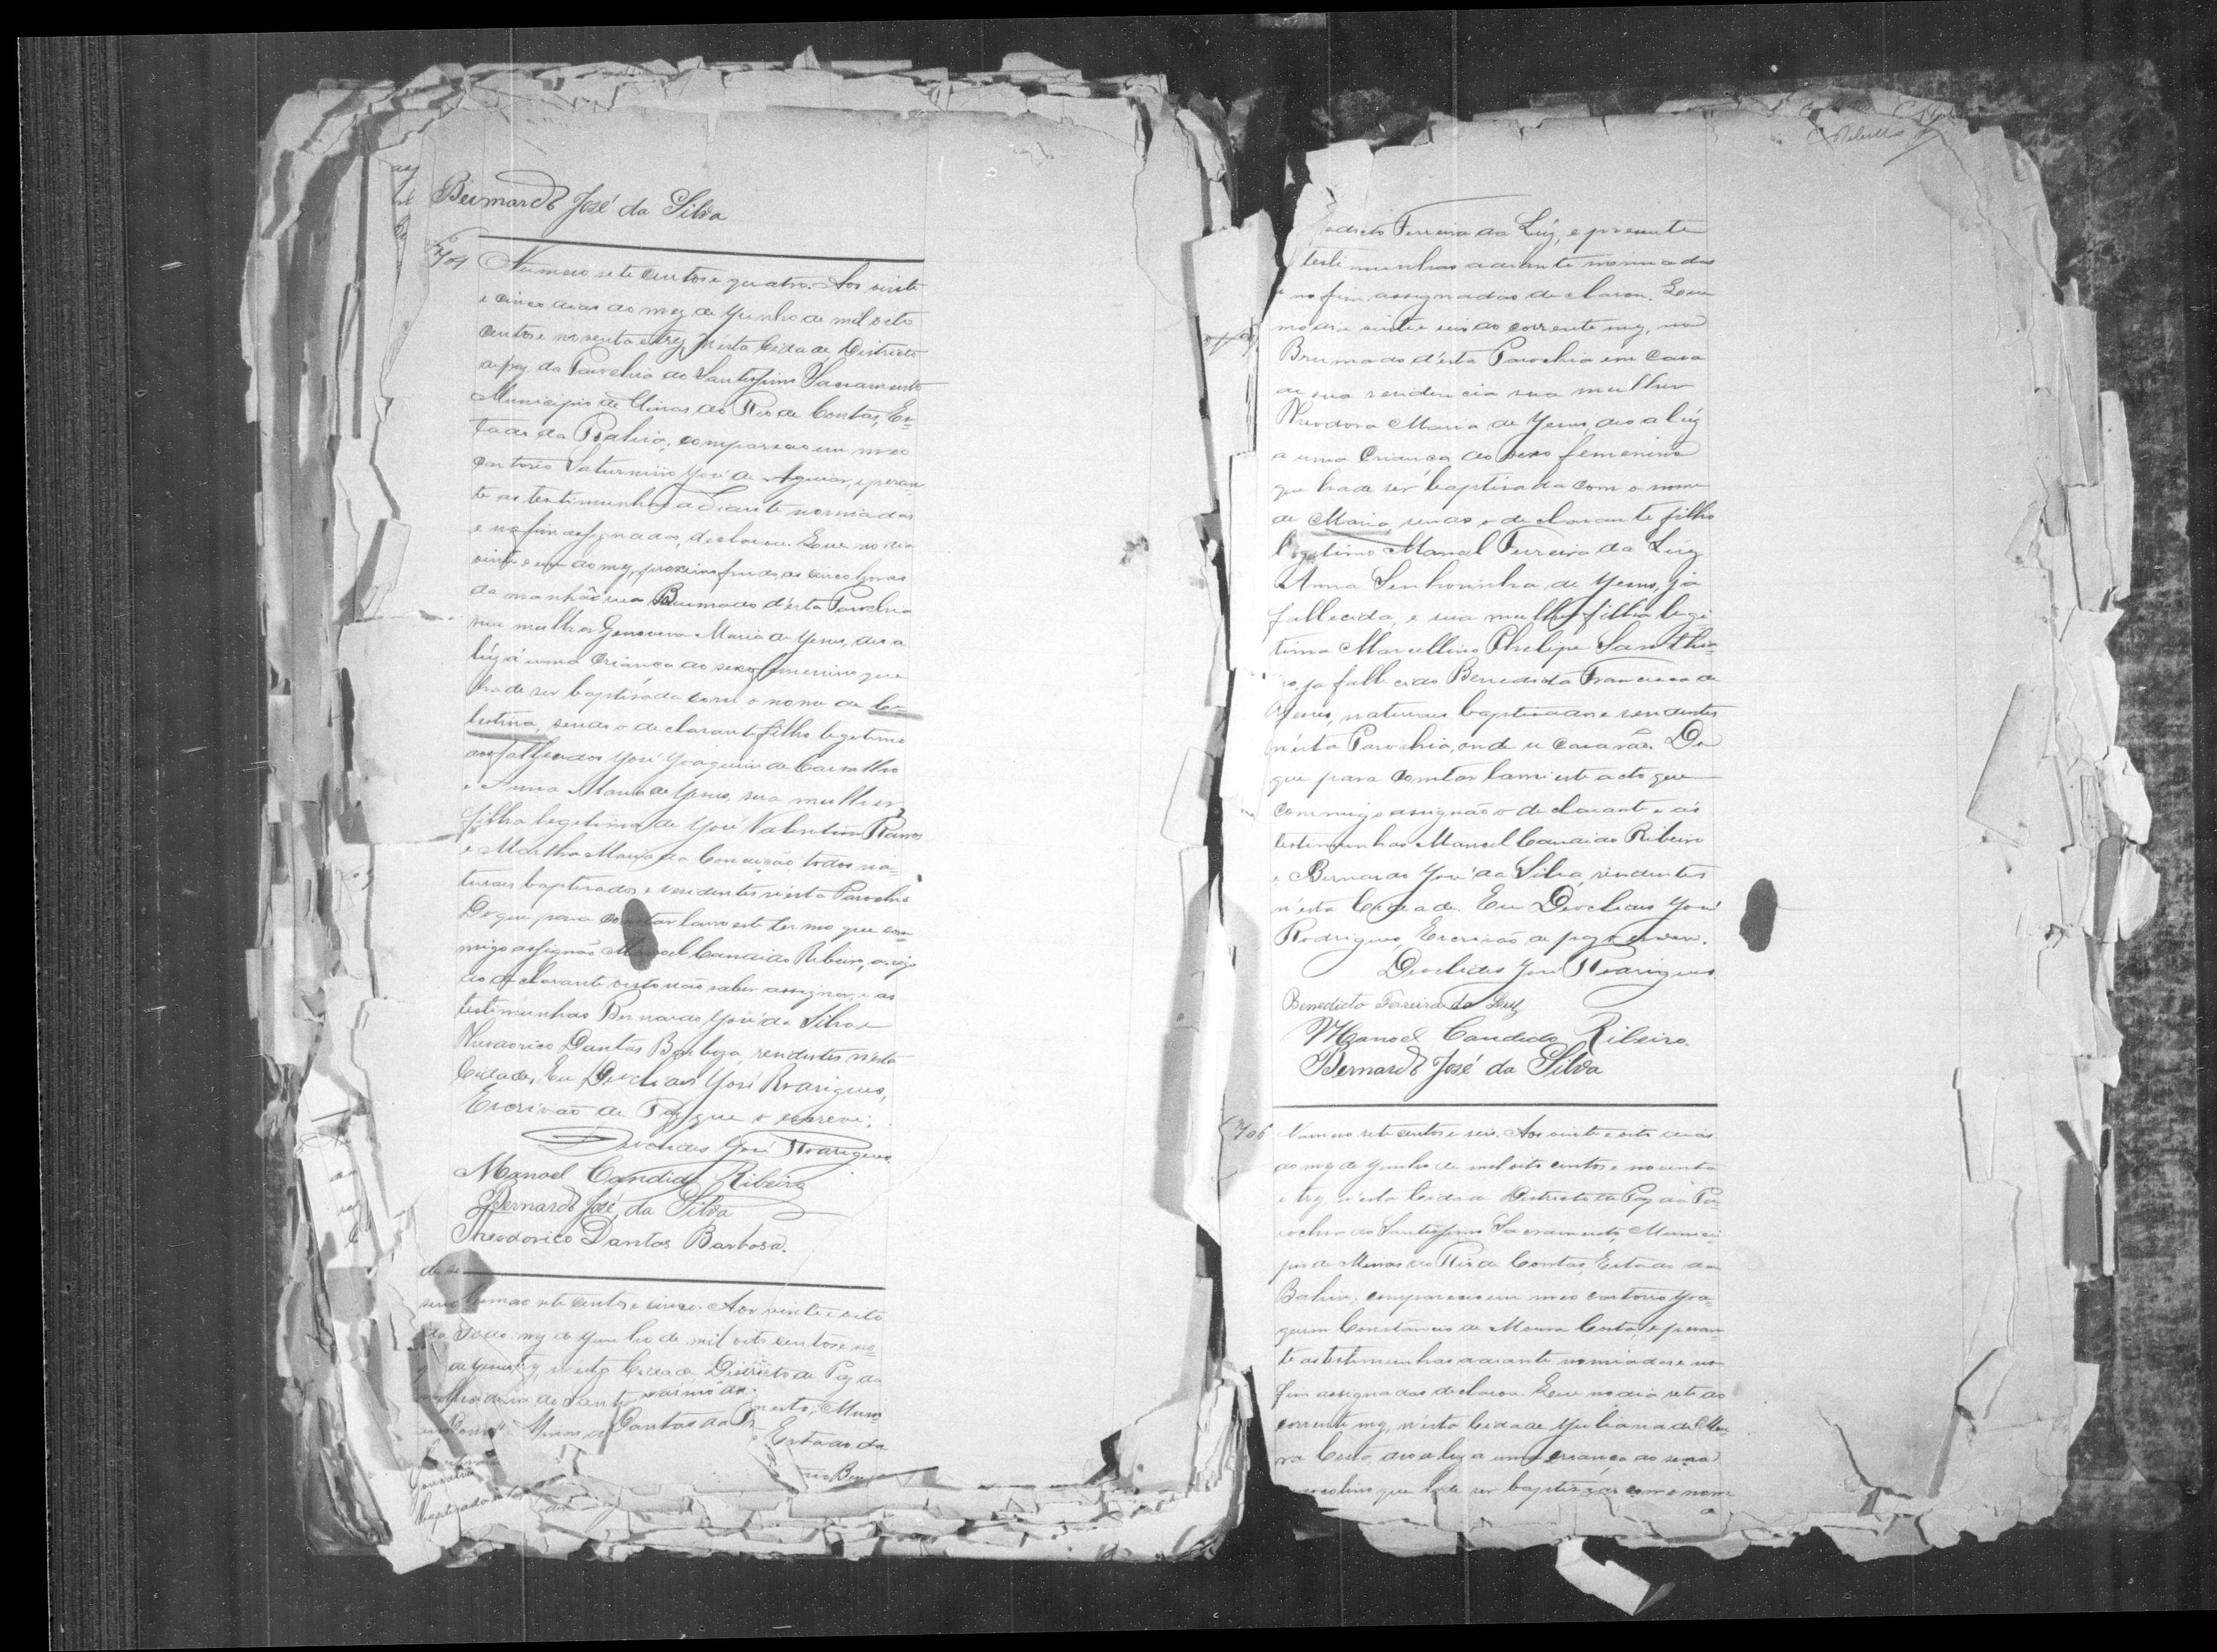 Bernardo José da Silva
704
Numero sete centos e quatro. Aos vinte
e cinco dias do mez de Junho de mil oito
centos e noventa e trez, n'esta Cidade, Districto
de paz da Parochia do Santissimo Sacramento
Municipio de Minas do Rio de Contas, Es-
tado da Bahia, compareceo em meo
cartorio Saturnino José de Aguiar, e peran-
te as testimunhas adiante nomiadas
e no fim assignadas, declarou. Que no dia
vinte e um do mez proximo findo, as cinco horas
da manhã no Brumado d'esta Parochia
sua mulher Genoveva Maria de Jesus, deo a
lúz á uma criança do sexo femenino que
hade ser baptisada com o nome de Ce-
lestina, sendo o declarante filho legitimo
dos fallecidos José Joaquim de Carvalho
e Anna Maria de Jesus, sua mulher,
filha legitima de José Valentim Ramos
e Martha Maria da Conceição todos na-
turaes baptisados e residentes n'esta Parochia
Do que para constar lavro este termo que com-
migo assignão Manoel Candido Ribeiro, a rogo
do declarante visto não saber assignar, e as
testimunhas Bernardo José da Silva e
Theodorico Dantas Barboza, residentes n'esta
Cidade, Eu Deoclides José Rodrigues,
Escrivão de Paz que o escrevi.
Deoclides José Rodrigues.
Manoel Candido Ribeiro
Bernardo José da Silva
Theodorico Dantas Barbosa.
Numero sete centos e cinco. Aos vinte e oito
mez de Junho de mil oito centos e no-
n'esta Cidade, Districto de Paz da
Estado da
Ferreira da Lúz, e presente
testimunhas adiante nomiadas
e no fim assignadas declarou. Que
no dia vinte e seis do corrente mez, no
Brumado d'esta Parochia em casa
de sua residencia sua mulher
Theodora Maria de Jesus, deo a lúz
a uma criança do sexo femenino
que hade ser baptisada com o nome
de Maria, sendo o declarante filho
legitimo Manoel Ferreira da Lúz
Anna Senhorinha de Jesus, já
fallecida, e sua mulher filha legi
tima Marcellino Phelipe
já fallecido Benedicta Francisca de
Jesus, naturaes baptisados e residentes
n'esta Parochia, onde se casarão. Do
que para constar lavrei este acto que
commigo assignão o declarante e ás
testimunhas Manoel Candido Ribeiro
e Bernardo José da Silva, residentes
n'esta Cidade. Eu Deoclides José
Rodrigues, Escrivão de paz o escrevi.
Deoclides José Rodrigues.
Benedicto Ferreira da Luz
Manoel Candido Ribeiro.
Bernardo José da Silva
706
Numero sete centos e seis. Aos vinte e oito dias
do mez de Junho de mil oito centos e noventa
e trez, n'esta Cidade Districto de Paz da Pa-
rochia do Santissimo Sacramento, Munici-
pio de Minas do Rio de Contas, Estado da
Bahia, compareceo em meo cartorio Joa-
quim Constancio de Moura Costa, e peran-
te as testimunhas adiante nomiadas e no
fim assignadas declarou. Que no dia sete do
corrente mez, n'esta Cidade Juliana de Mou-
ra Costa, deo a luz a uma criança do sexo
masculino que hade ser baptisado com o nome